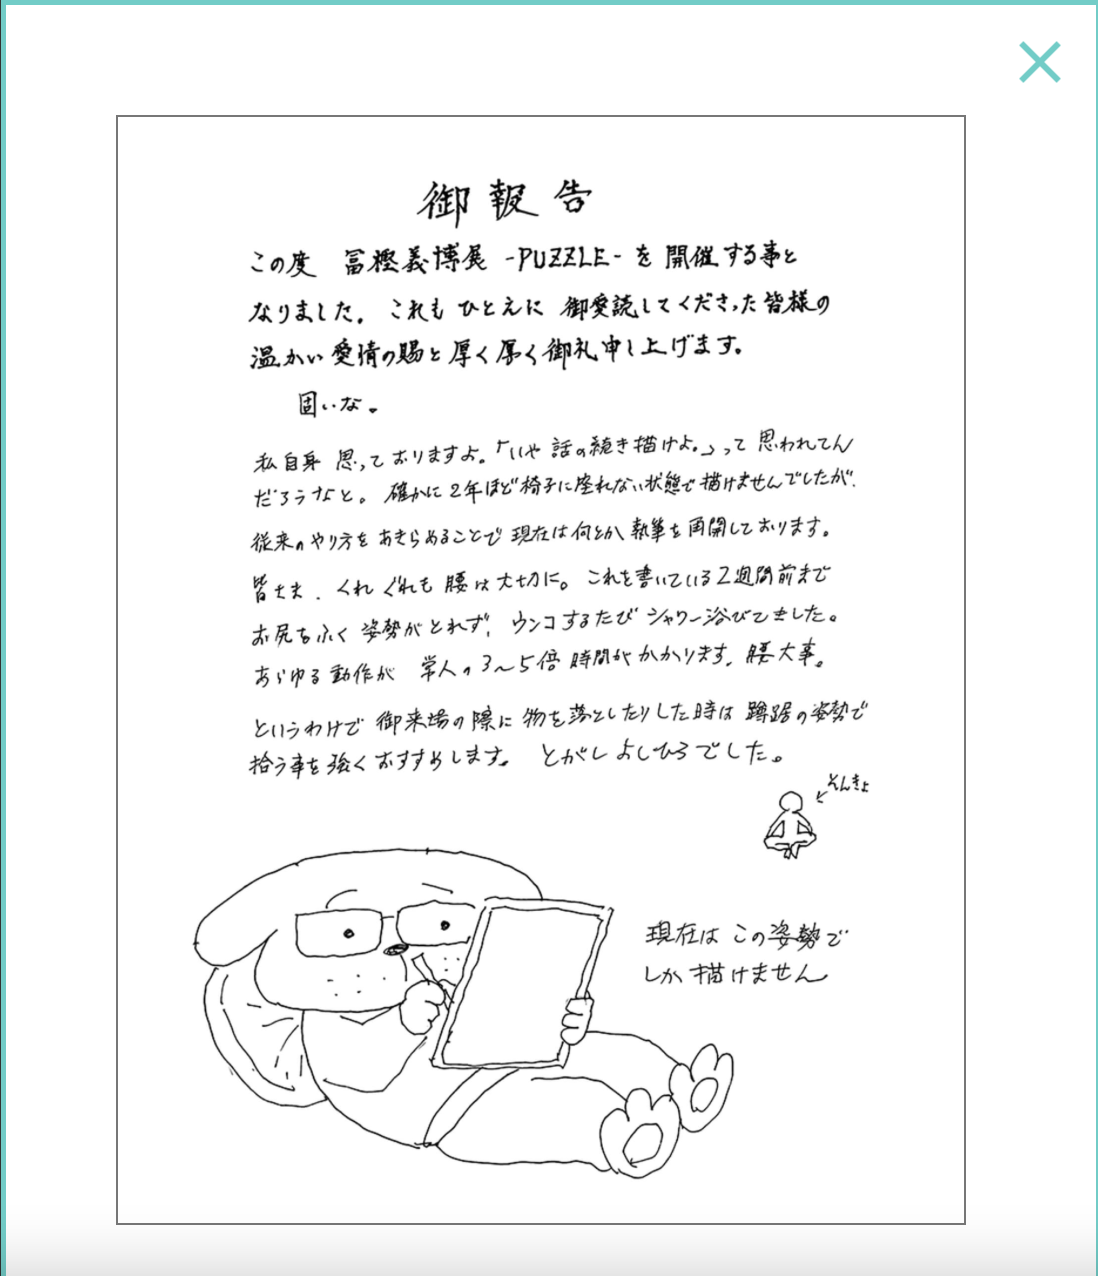 御報告
この度 冨樫義博展 -PUZZLE- を 開催する事と
なりました。これも ひとえに 御愛読してくださった皆様の
温かい愛情の賜と厚く厚く御礼申し上げます。
固いな。
私自身 思っておりますよ。「いや 話の続き描けよ。」って 思われてん
だろうなと。確かに2年ほど椅子に座れない状態で描けませんでしたが、
従来のやり方をあきらめることで現在は何とか執筆を再開しております。
皆さま、くれぐれも腰は大切に。これを書いている2週間前まで
お尻もふく姿勢がとれず、ウンコするたびシャワー浴びてました。
あらゆる動作が 常人の3〜5倍時間がかかります。腰大事。
というわけで 御来場の際に物を落としたりした時は 蹲踞の姿勢で
拾う事を強くおすすめします。 とがしよしひろでした。
そんきょ
現在は この姿勢で
しか描けません